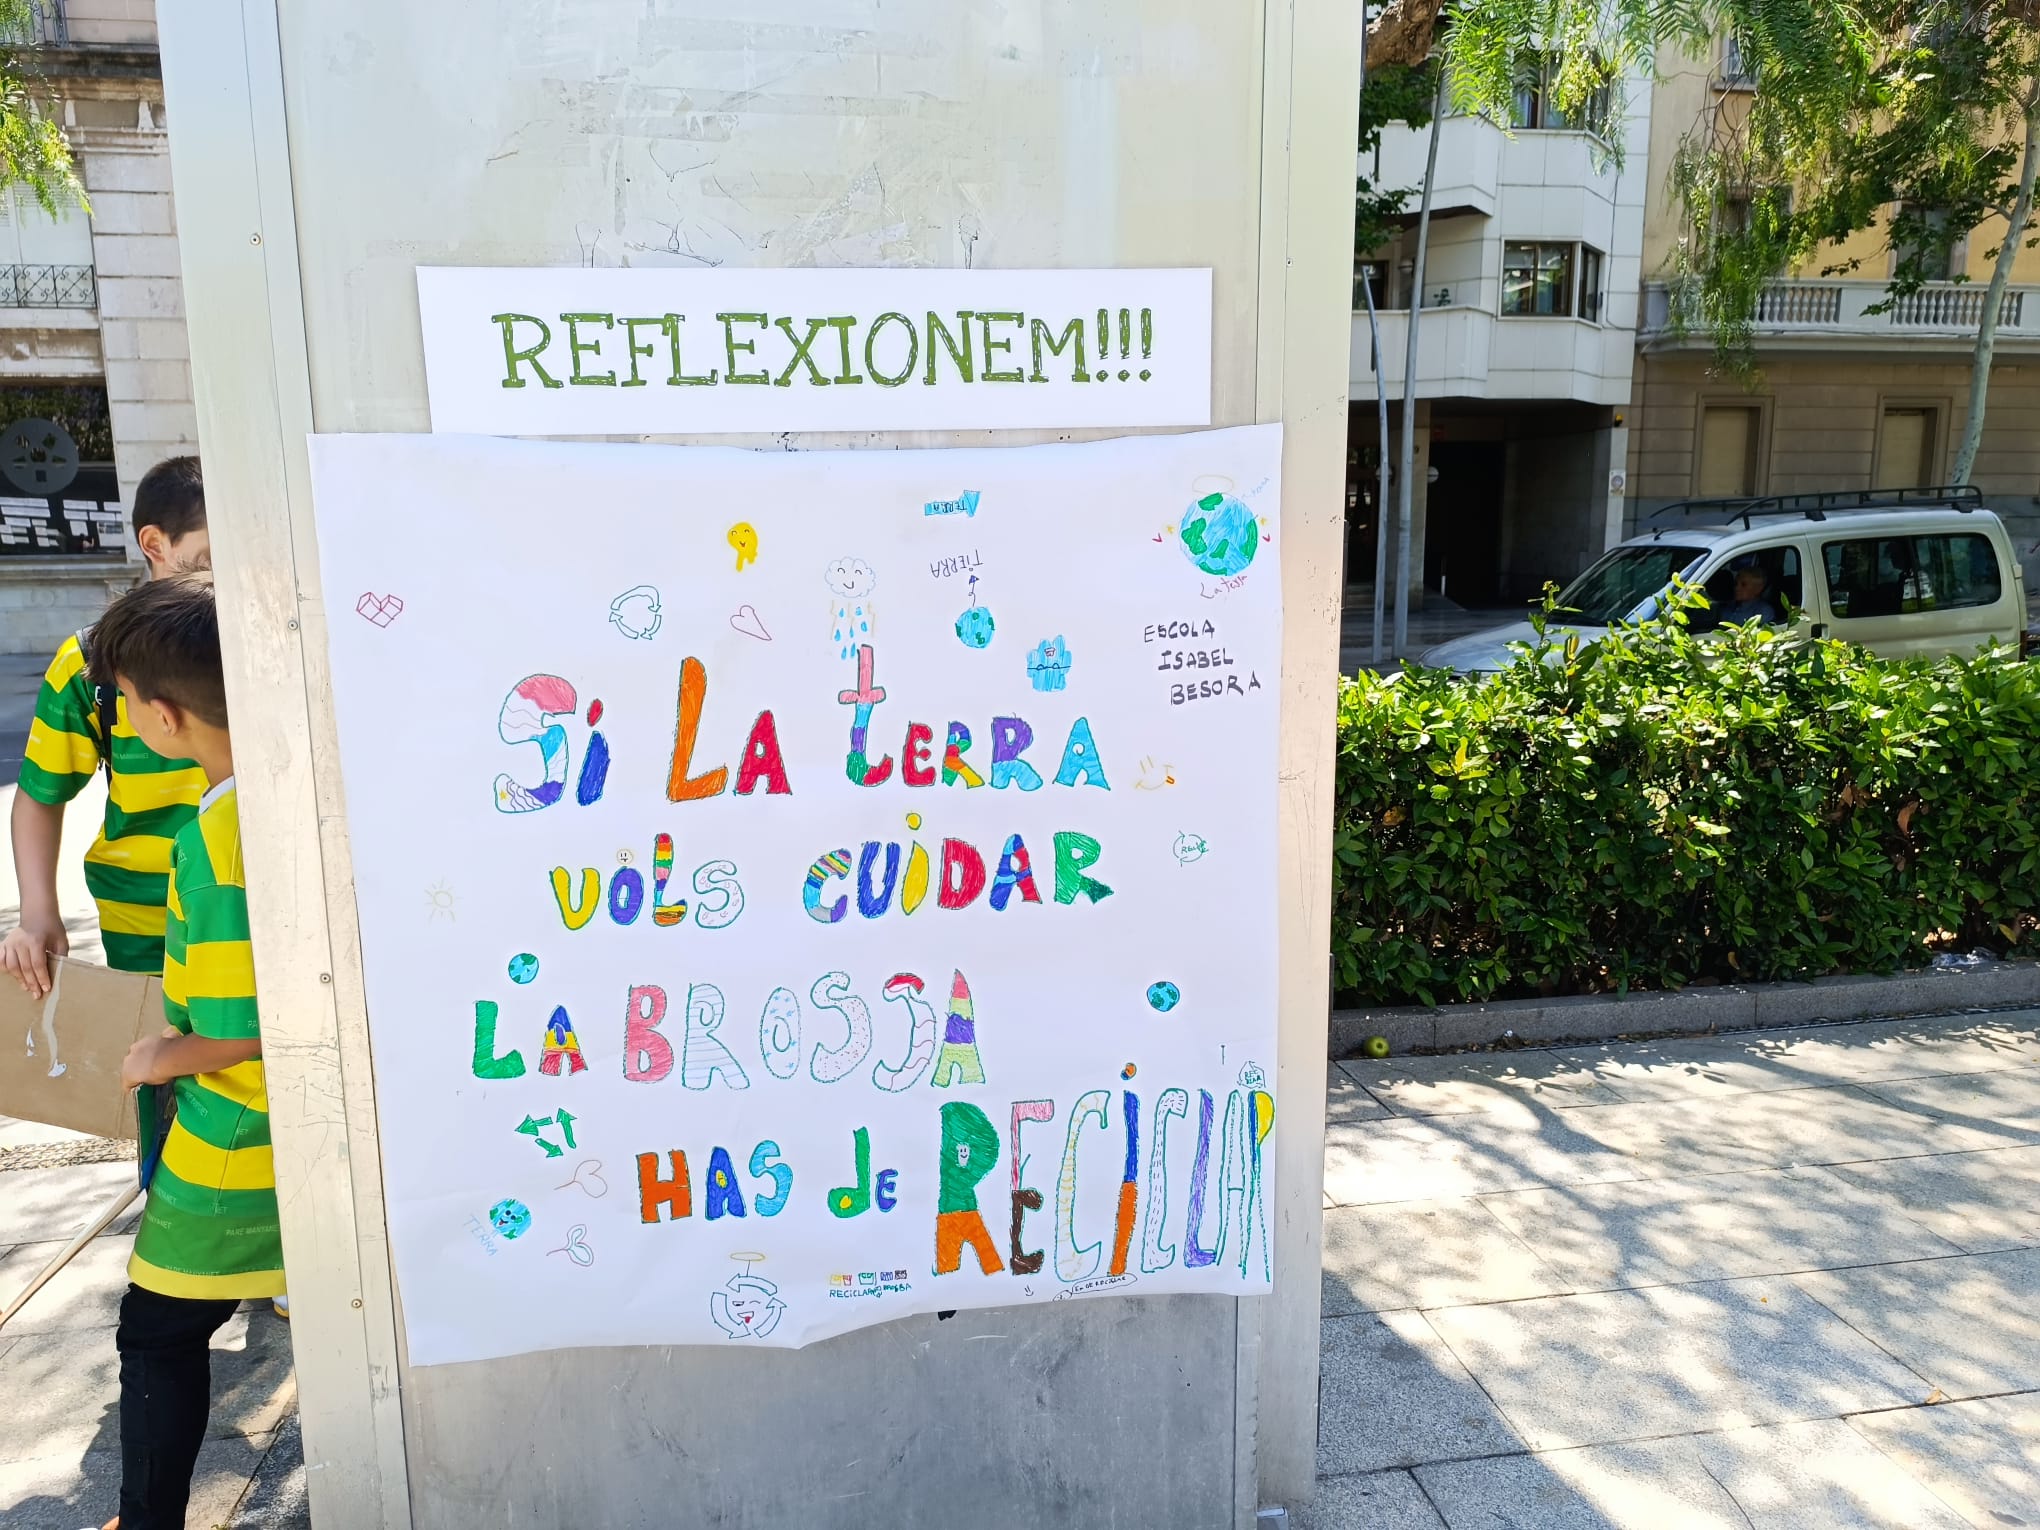 REFLEXIONEM!!!
TERRA
TIERRA
La terra
ESCOLA
ISABEL
BESORA
Si LA tERRA
VOLS CUIDAR
LA BROSSA
HAS de RECICLAR
TERRA
RECICLAR
PARE MANYANET